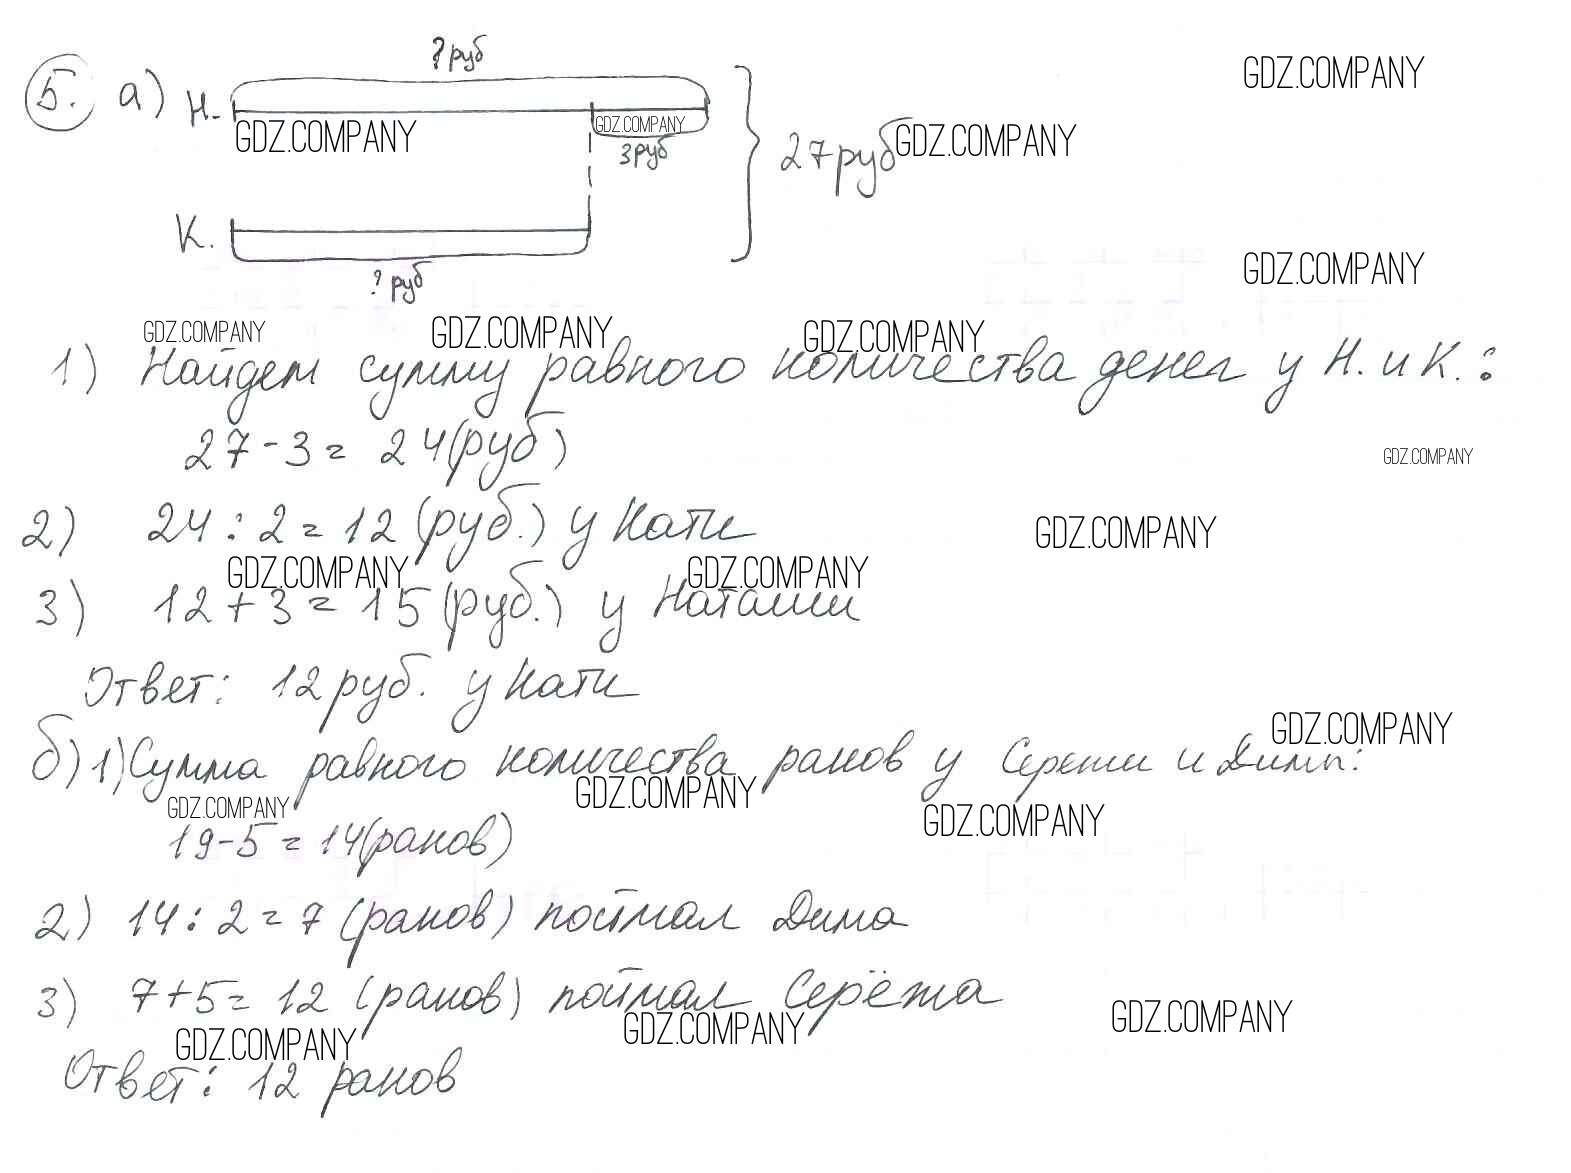 ? руб
5. а) Н.
GDZ.COMPANY
GDZ.COMPANY
GDZ.COMPANY
3 руб
27 руб
GDZ.COMPANY
К.
? руб
GDZ.COMPANY
GDZ.COMPANY
GDZ.COMPANY
GDZ.COMPANY
1) Найдем сумму равного количества денег у Н. и К.:
27 - 3 = 24 (руб)
GDZ.COMPANY
2) 24 : 2 = 12 (руб.) у Кати
GDZ.COMPANY
GDZ.COMPANY
GDZ.COMPANY
3) 12 + 3 = 15 (руб.) у Наташи
Ответ: 12 руб. у Кати
GDZ.COMPANY
б) 1) Сумма равного количества раков у Сережи и Димы:
GDZ.COMPANY
GDZ.COMPANY
GDZ.COMPANY
19 - 5 = 14 (раков)
2) 14 : 2 = 7 (раков) поймал Дима
3) 7 + 5 = 12 (раков) поймал Серёжа
GDZ.COMPANY
GDZ.COMPANY
GDZ.COMPANY
Ответ: 12 раков